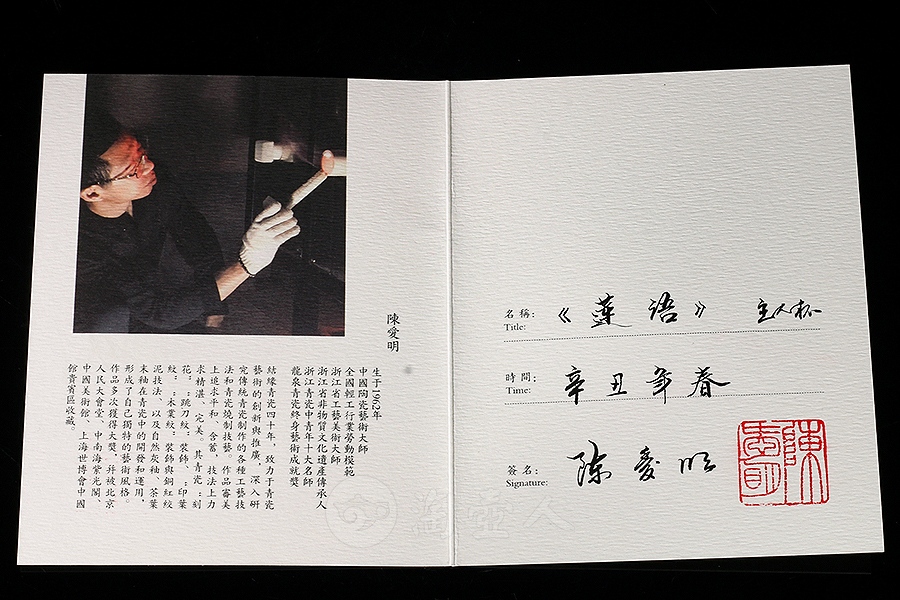 陳愛明
生于1962年
中國陶瓷藝術大師
全國輕工行業勞動模範
浙江省工藝美術大師
浙江省非物質文化遺產傳承人
浙江青瓷中青年十大名師
龍泉青瓷終身藝術成就獎
結緣青瓷四十年，致力于青瓷
藝術的創新與推廣，深入研
究傳統青瓷制作的各種工藝技
法和青瓷燒制技藝。作品審美
上追求平和、含蓄，技法上力
求精湛、完美。其青瓷：刻
花：：跳刀紋：裝飾、：印葉
紋：：木葉紋：裝飾與銅紅絞
泥技法、以及自然灰釉、茶葉
末釉在青瓷中的開發和運用，
形成了自己獨特的藝術風格。
作品多次獲得大獎，并被北京
人民大會堂、中南海紫光閣、
中國美術館、上海世博會中國
館貴賓區收藏。
名稱：《蓮語》主人杯
Title:
時間：辛丑年春
Time:
簽名：陳愛明
Signature:
陳愛明